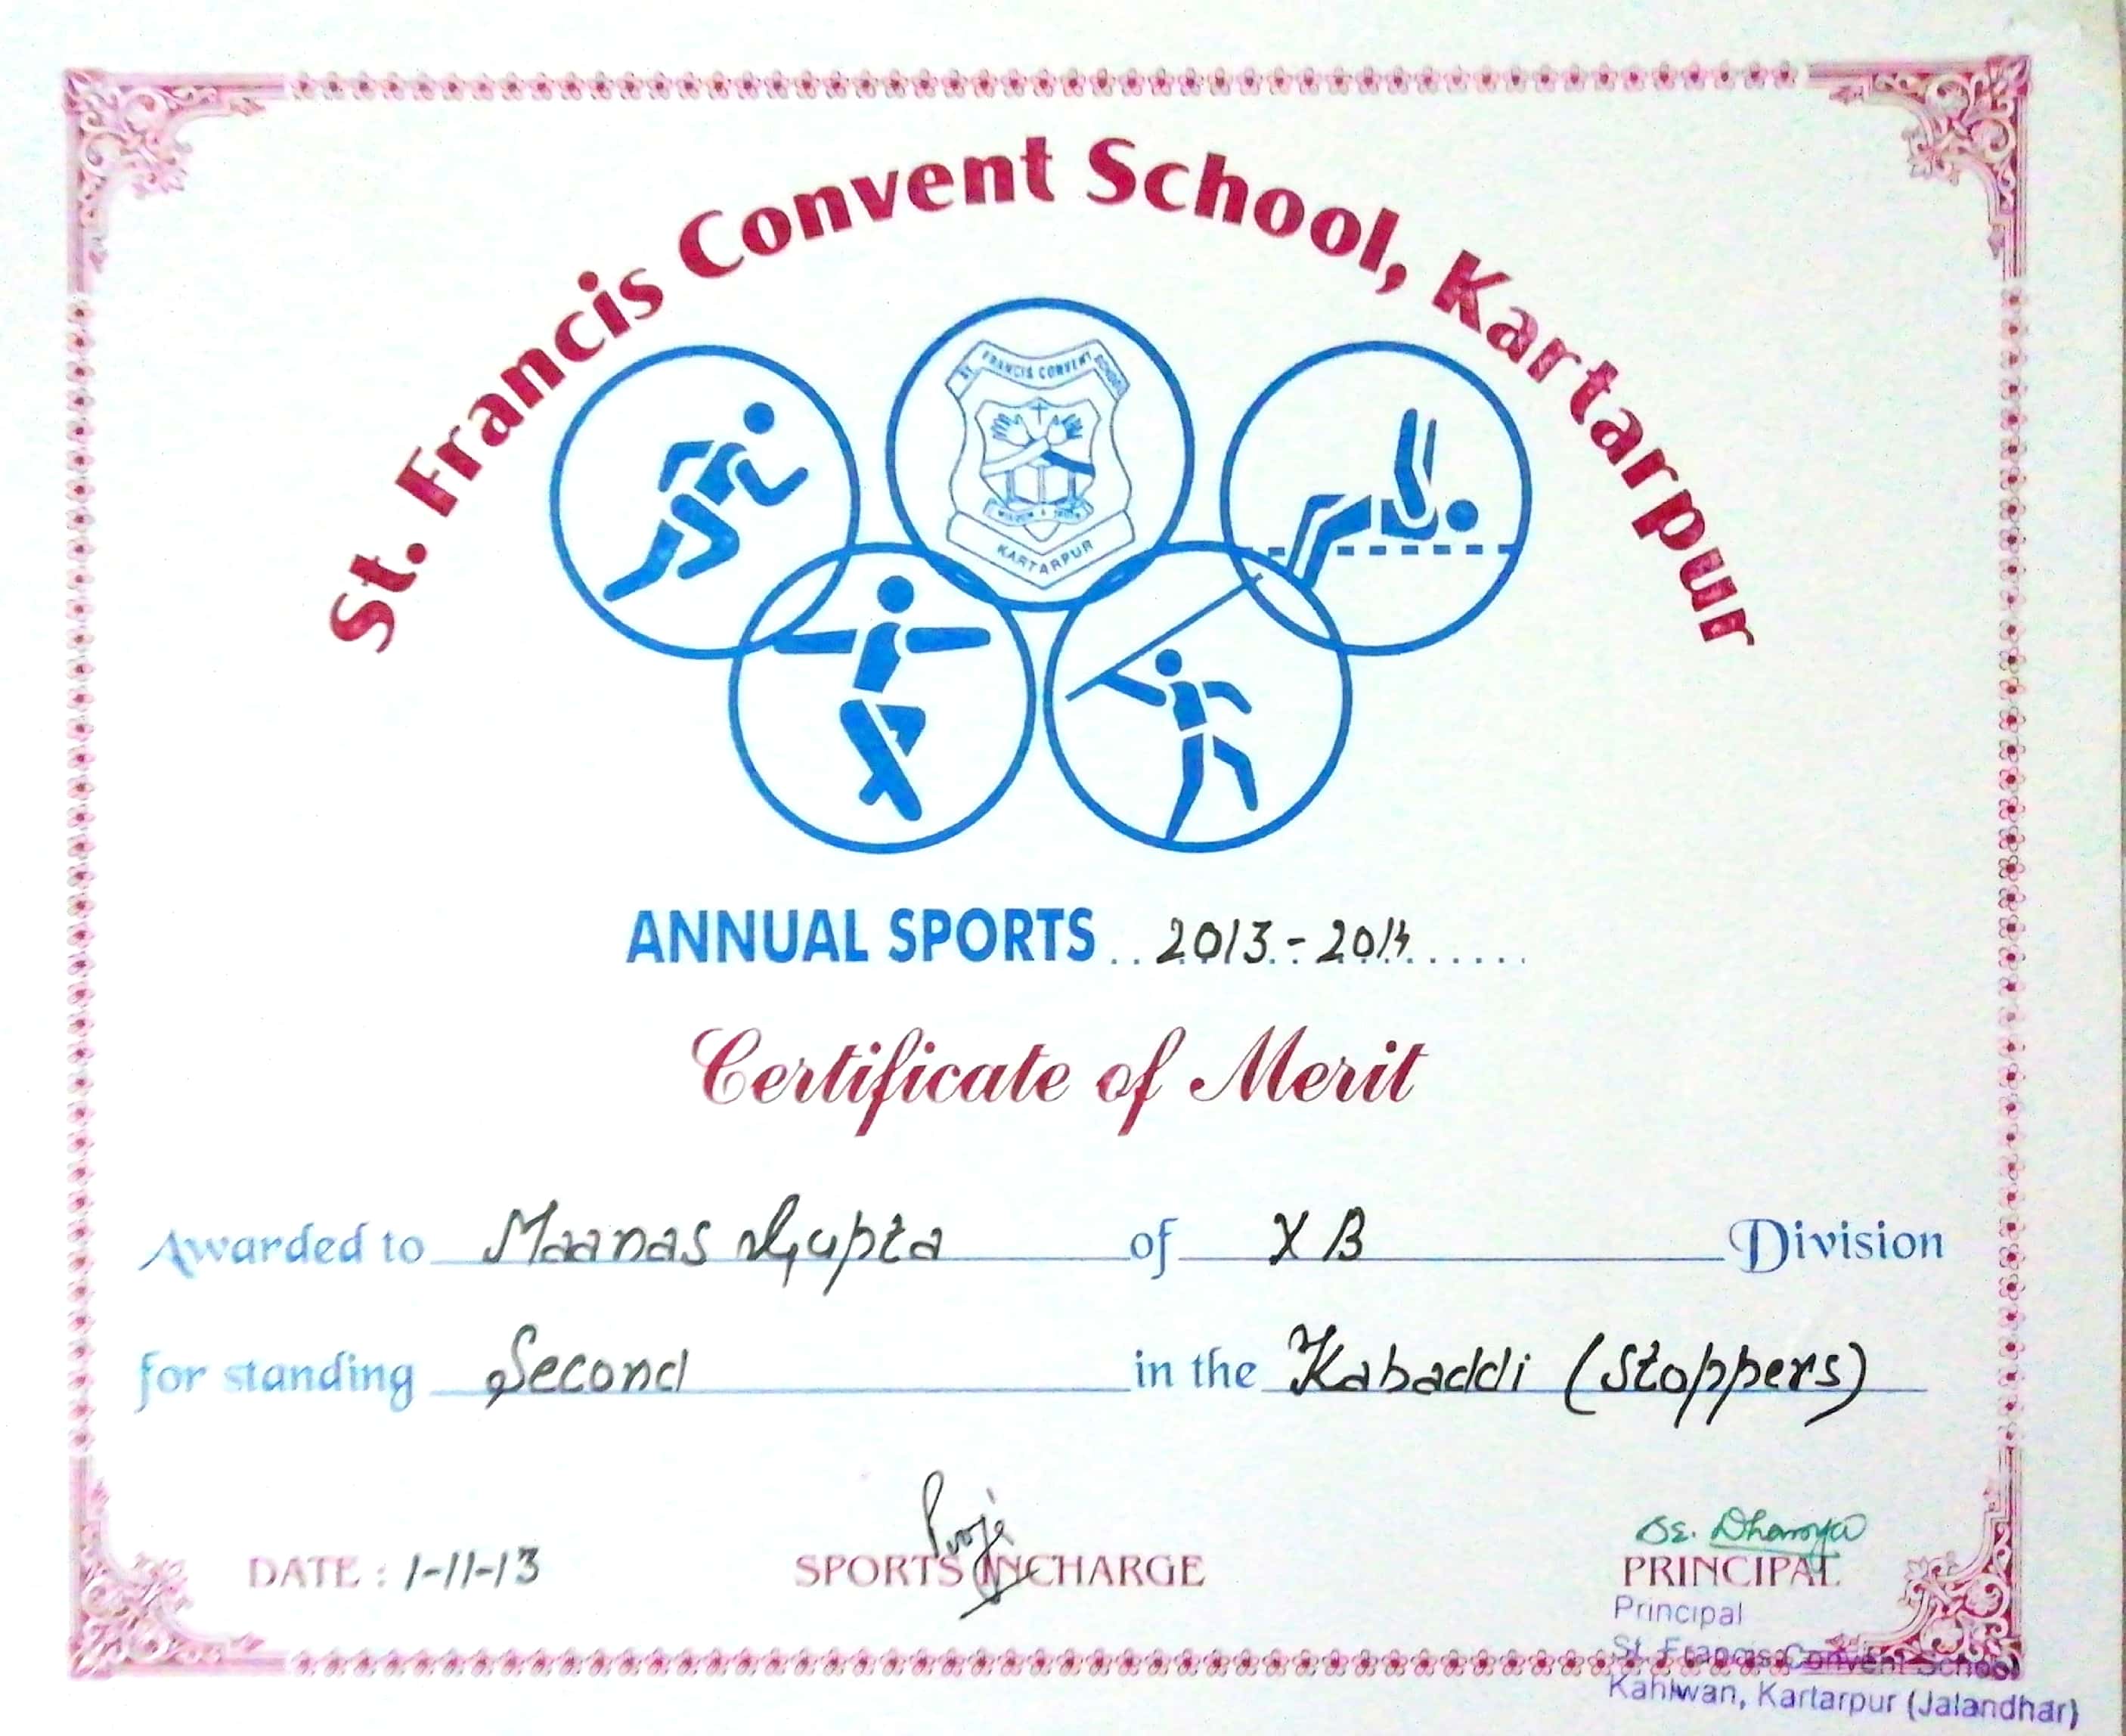 St. Francis Convent School, Kartarpur
ST. FRANCIS CONVENT SCHOOL
KARTARPUR
ANNUAL SPORTS 2013-2014
Certificate of Merit
Awarded to Maanas Gupta of X B Division
for standing Second in the Kabaddi (Stoppers)
DATE : 1-11-13
SPORTS INCHARGE
PRINCIPAL
Principal
St. Francis Convent School
Kahlwan, Kartarpur (Jalandhar)